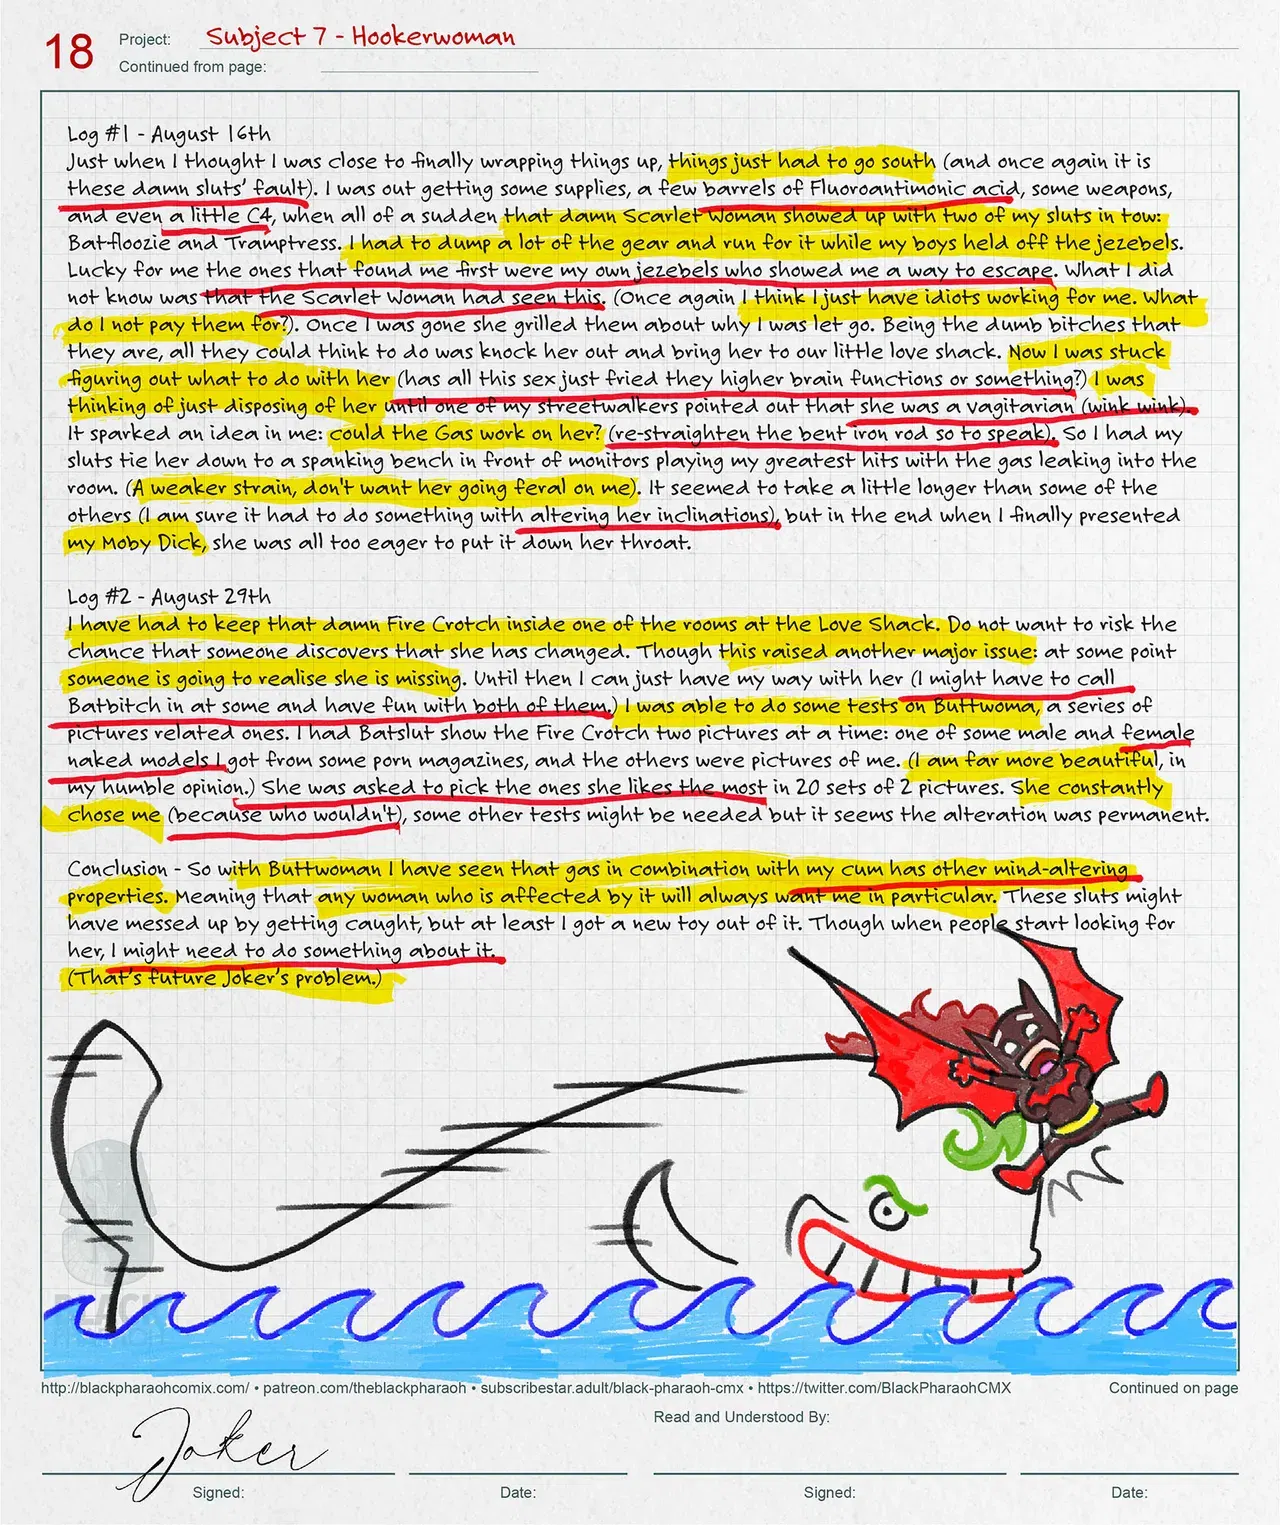 18
Project: Subject 7 - Hookerwoman
Continued from page:
Log #1 - August 16th
Just when I thought I was close to finally wrapping things up, things just had to go south (and once again it is
these damn sluts' fault). I was out getting some supplies, a few barrels of Fluoroantimonic acid, some weapons,
and even a little C4, when all of a sudden that damn Scarlet Woman showed up with two of my sluts in tow:
Bat-floozie and Tramptress. I had to dump a lot of the gear and run for it while my boys held off the jezebels.
Lucky for me the ones that found me first were my own jezebels who showed me a way to escape. What I did
not know was that the Scarlet Woman had seen this. (Once again I think I just have idiots working for me. What
do I not pay them for?). Once I was gone she grilled them about why I was let go. Being the dumb bitches that
they are, all they could think to do was knock her out and bring her to our little love shack. Now I was stuck
figuring out what to do with her (has all this sex just fried they higher brain functions or something?) I was
thinking of just disposing of her until one of my streetwalkers pointed out that she was a vagitarian (wink wink).
It sparked an idea in me: could the Gas work on her? (re-straighten the bent iron rod so to speak). So I had my
sluts tie her down to a spanking bench in front of monitors playing my greatest hits with the gas leaking into the
room. (A weaker strain, don't want her going feral on me). It seemed to take a little longer than some of the
others (I am sure it had to do something with altering her inclinations), but in the end when I finally presented
my Moby Dick, she was all too eager to put it down her throat.
Log #2 - August 29th
I have had to keep that damn Fire Crotch inside one of the rooms at the Love Shack. Do not want to risk the
chance that someone discovers that she has changed. Though this raised another major issue: at some point
someone is going to realise she is missing. Until then I can just have my way with her (I might have to call
Batbitch in at some and have fun with both of them.) I was able to do some tests on Buttwoma, a series of
pictures related ones. I had Batslut show the Fire Crotch two pictures at a time: one of some male and female
naked models I got from some porn magazines, and the others were pictures of me. (I am far more beautiful, in
my humble opinion.) She was asked to pick the ones she likes the most in 20 sets of 2 pictures. She constantly
chose me (because who wouldn't), some other tests might be needed but it seems the alteration was permanent.
Conclusion - So with Buttwoman I have seen that gas in combination with my cum has other mind-altering
properties. Meaning that any woman who is affected by it will always want me in particular. These sluts might
have messed up by getting caught, but at least I got a new toy out of it. Though when people start looking for
her, I might need to do something about it.
(That's future Joker's problem.)
http://blackpharaohcomix.com/ • patreon.com/theblackpharaoh • subscribestar.adult/black-pharaoh-cmx • https://twitter.com/BlackPharaohCMX
Continued on page
Read and Understood By:
Joker
Signed:
Date:
Signed:
Date: